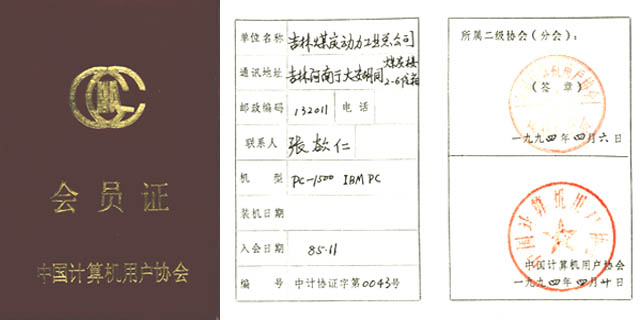 会员证
中国计算机用户协会
单位名称 吉林煤炭动力工业总公司
通讯地址 吉林河南 大安胡同 煤炭楼 2-6
邮政编码 132011 电话
联系人 张敬仁
机型 PC-1500 IBM PC
装机日期
入会日期 85.11
编号 中计协证字第0043号
所属二级协会(分会):
(签章)
一九九四年四月六日
中国计算机用户协会
中国计算机用户协会
一九九四年四月廿日